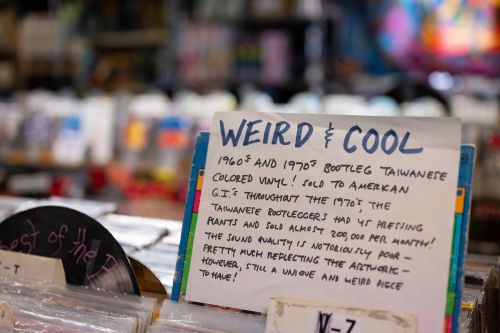 WEIRD & COOL
1960s AND 1970s BOOTLEG TAIWANESE
COLORED VINYL! SOLD TO AMERICAN
G.I.s THROUGHOUT THE 1970s, THE
TAIWANESE BOOTLEGGERS HAD 45 PRESSING
PLANTS AND SOLD ALMOST 200,000 PER MONTH!
THE SOUND QUALITY IS NOTORIOUSLY POOR -
PRETTY MUCH REFLECTING THE ARTWORK -
HOWEVER, STILL A UNIQUE AND WEIRD PIECE
TO HAVE!
est of the
-T
W-Z